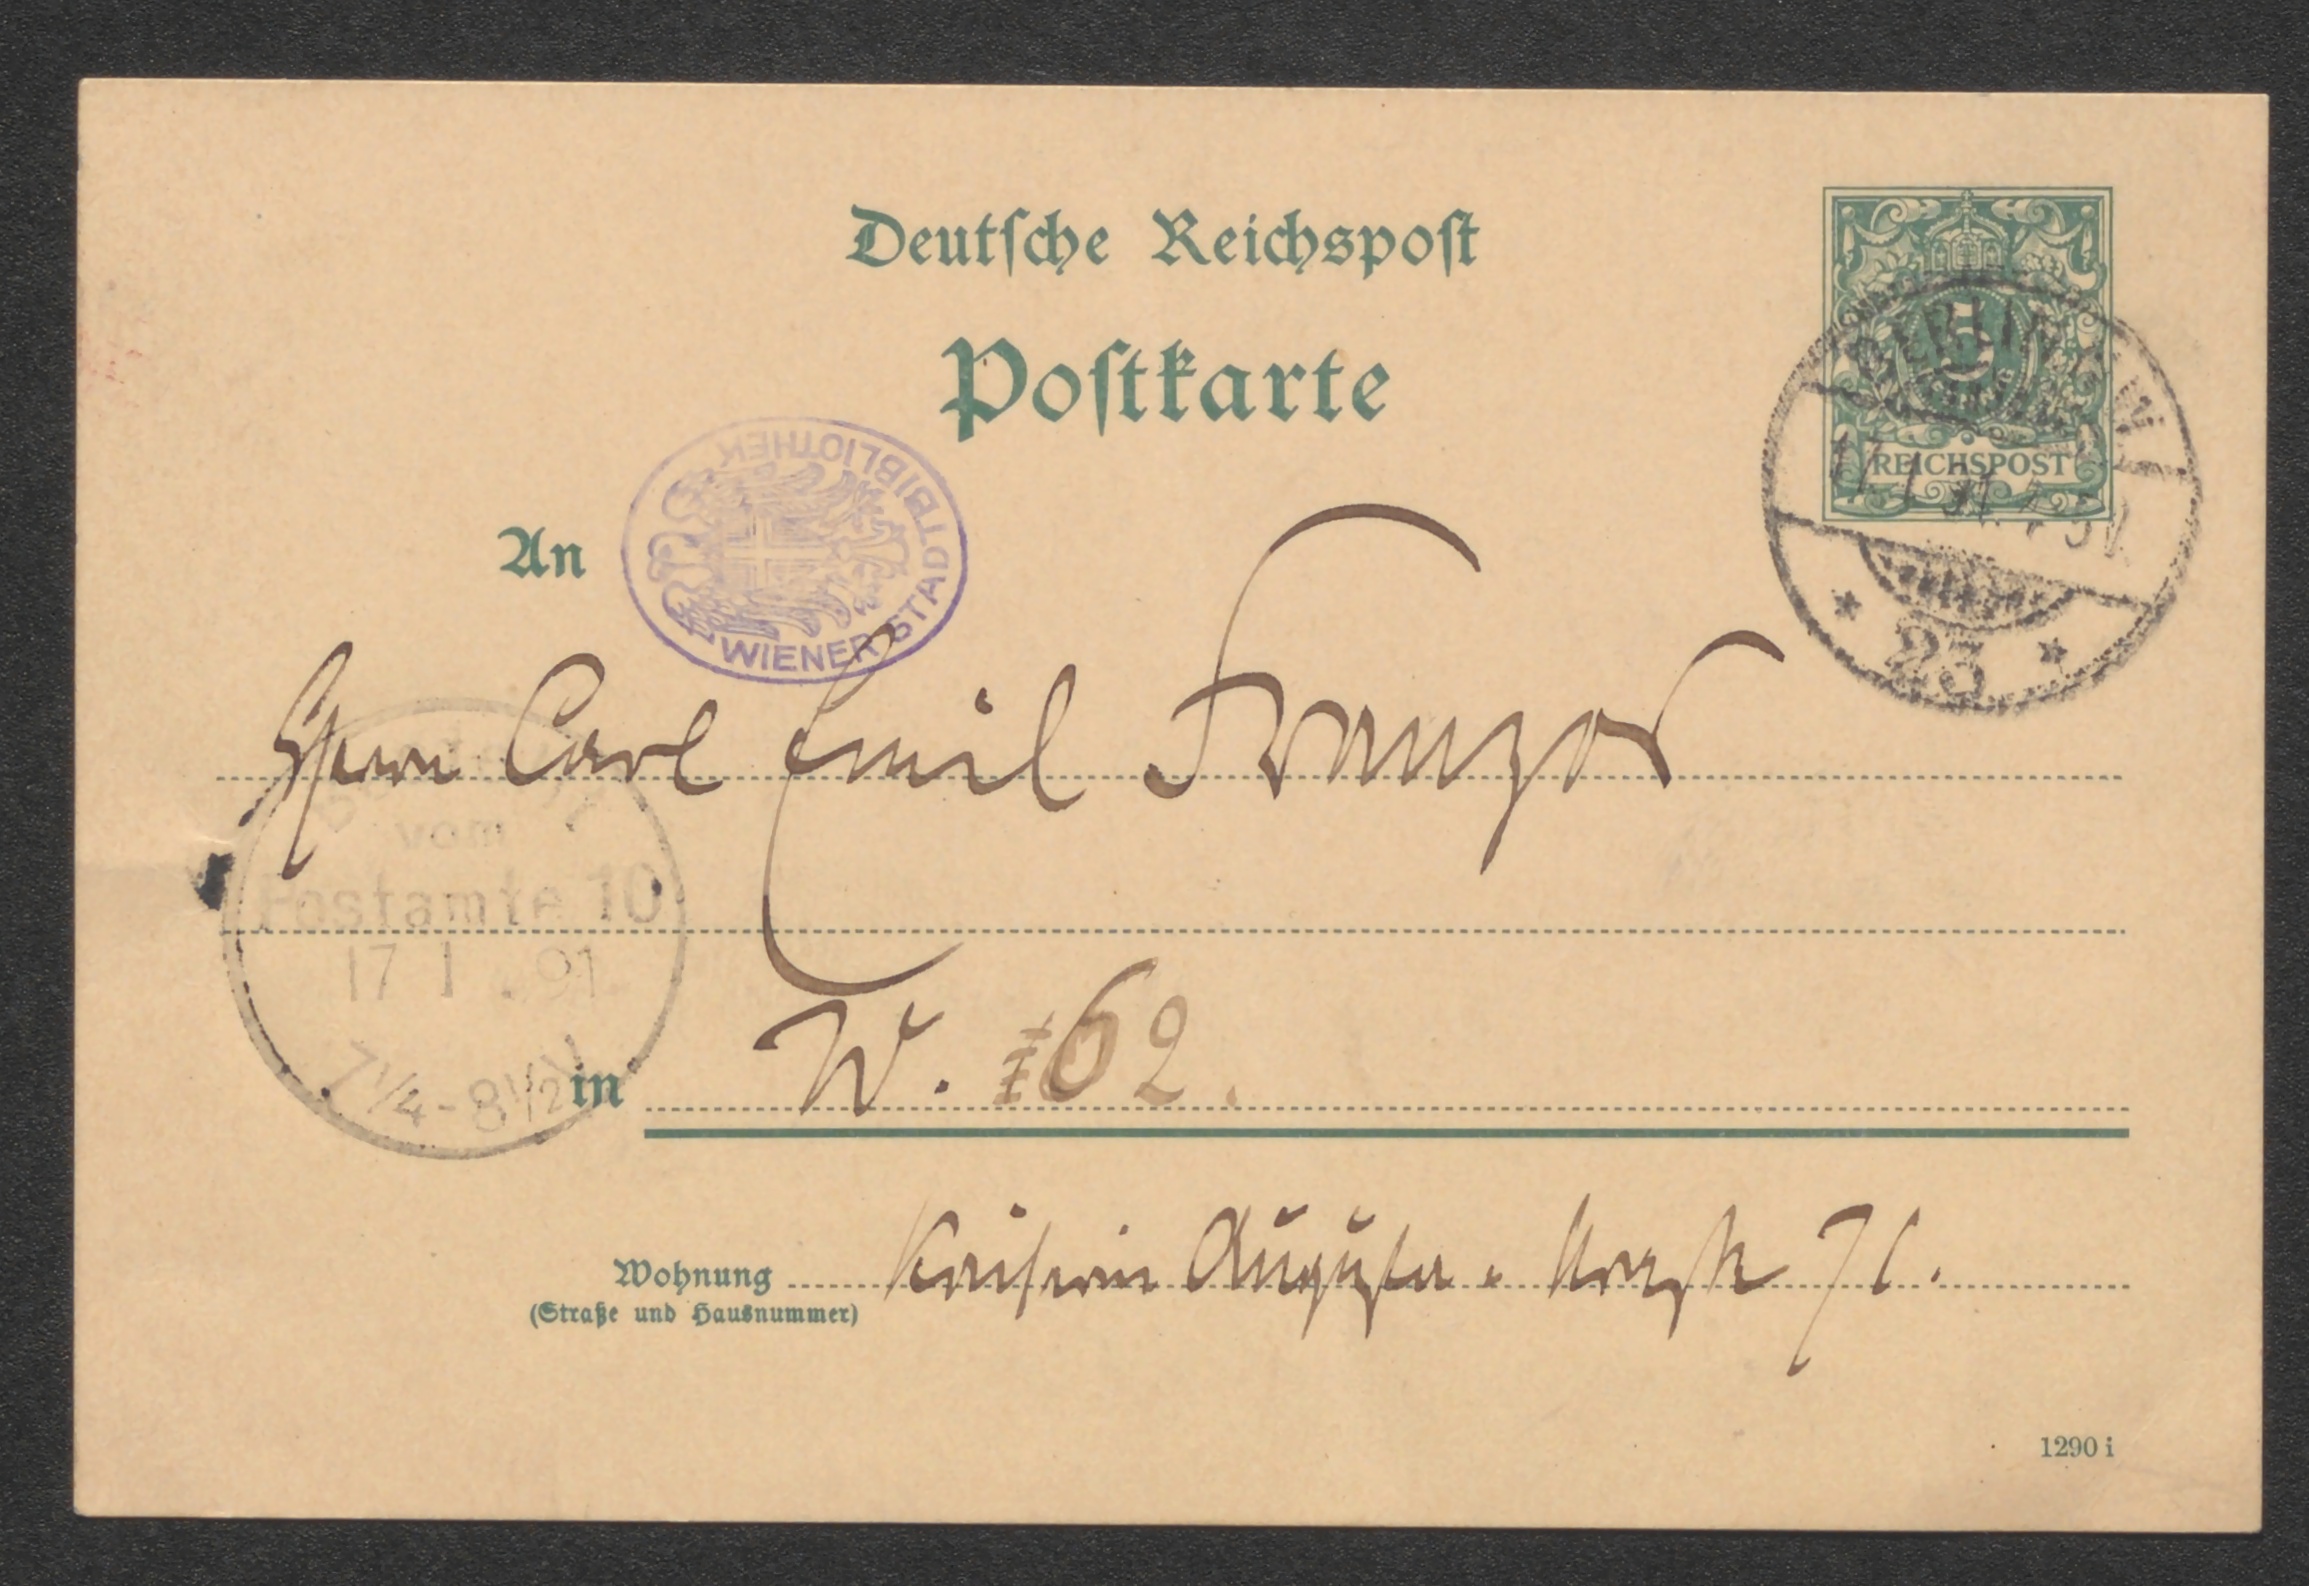 Deutsche Reichspost
Postkarte
5
PFENNIG
REICHSPOST
BERLIN N.W.
17.1.91.
* 23 *
An
WIENER STADTBIBLIOTHEK
Herrn Carl Emil Franzos
Bestellt
vom
Postamte 10
17 1 . 91
7 1/4 - 8 1/2 V
in W. 62.
Wohnung Kaiserin Augusta. 71.
(Straße und Hausnummer)
1290 i